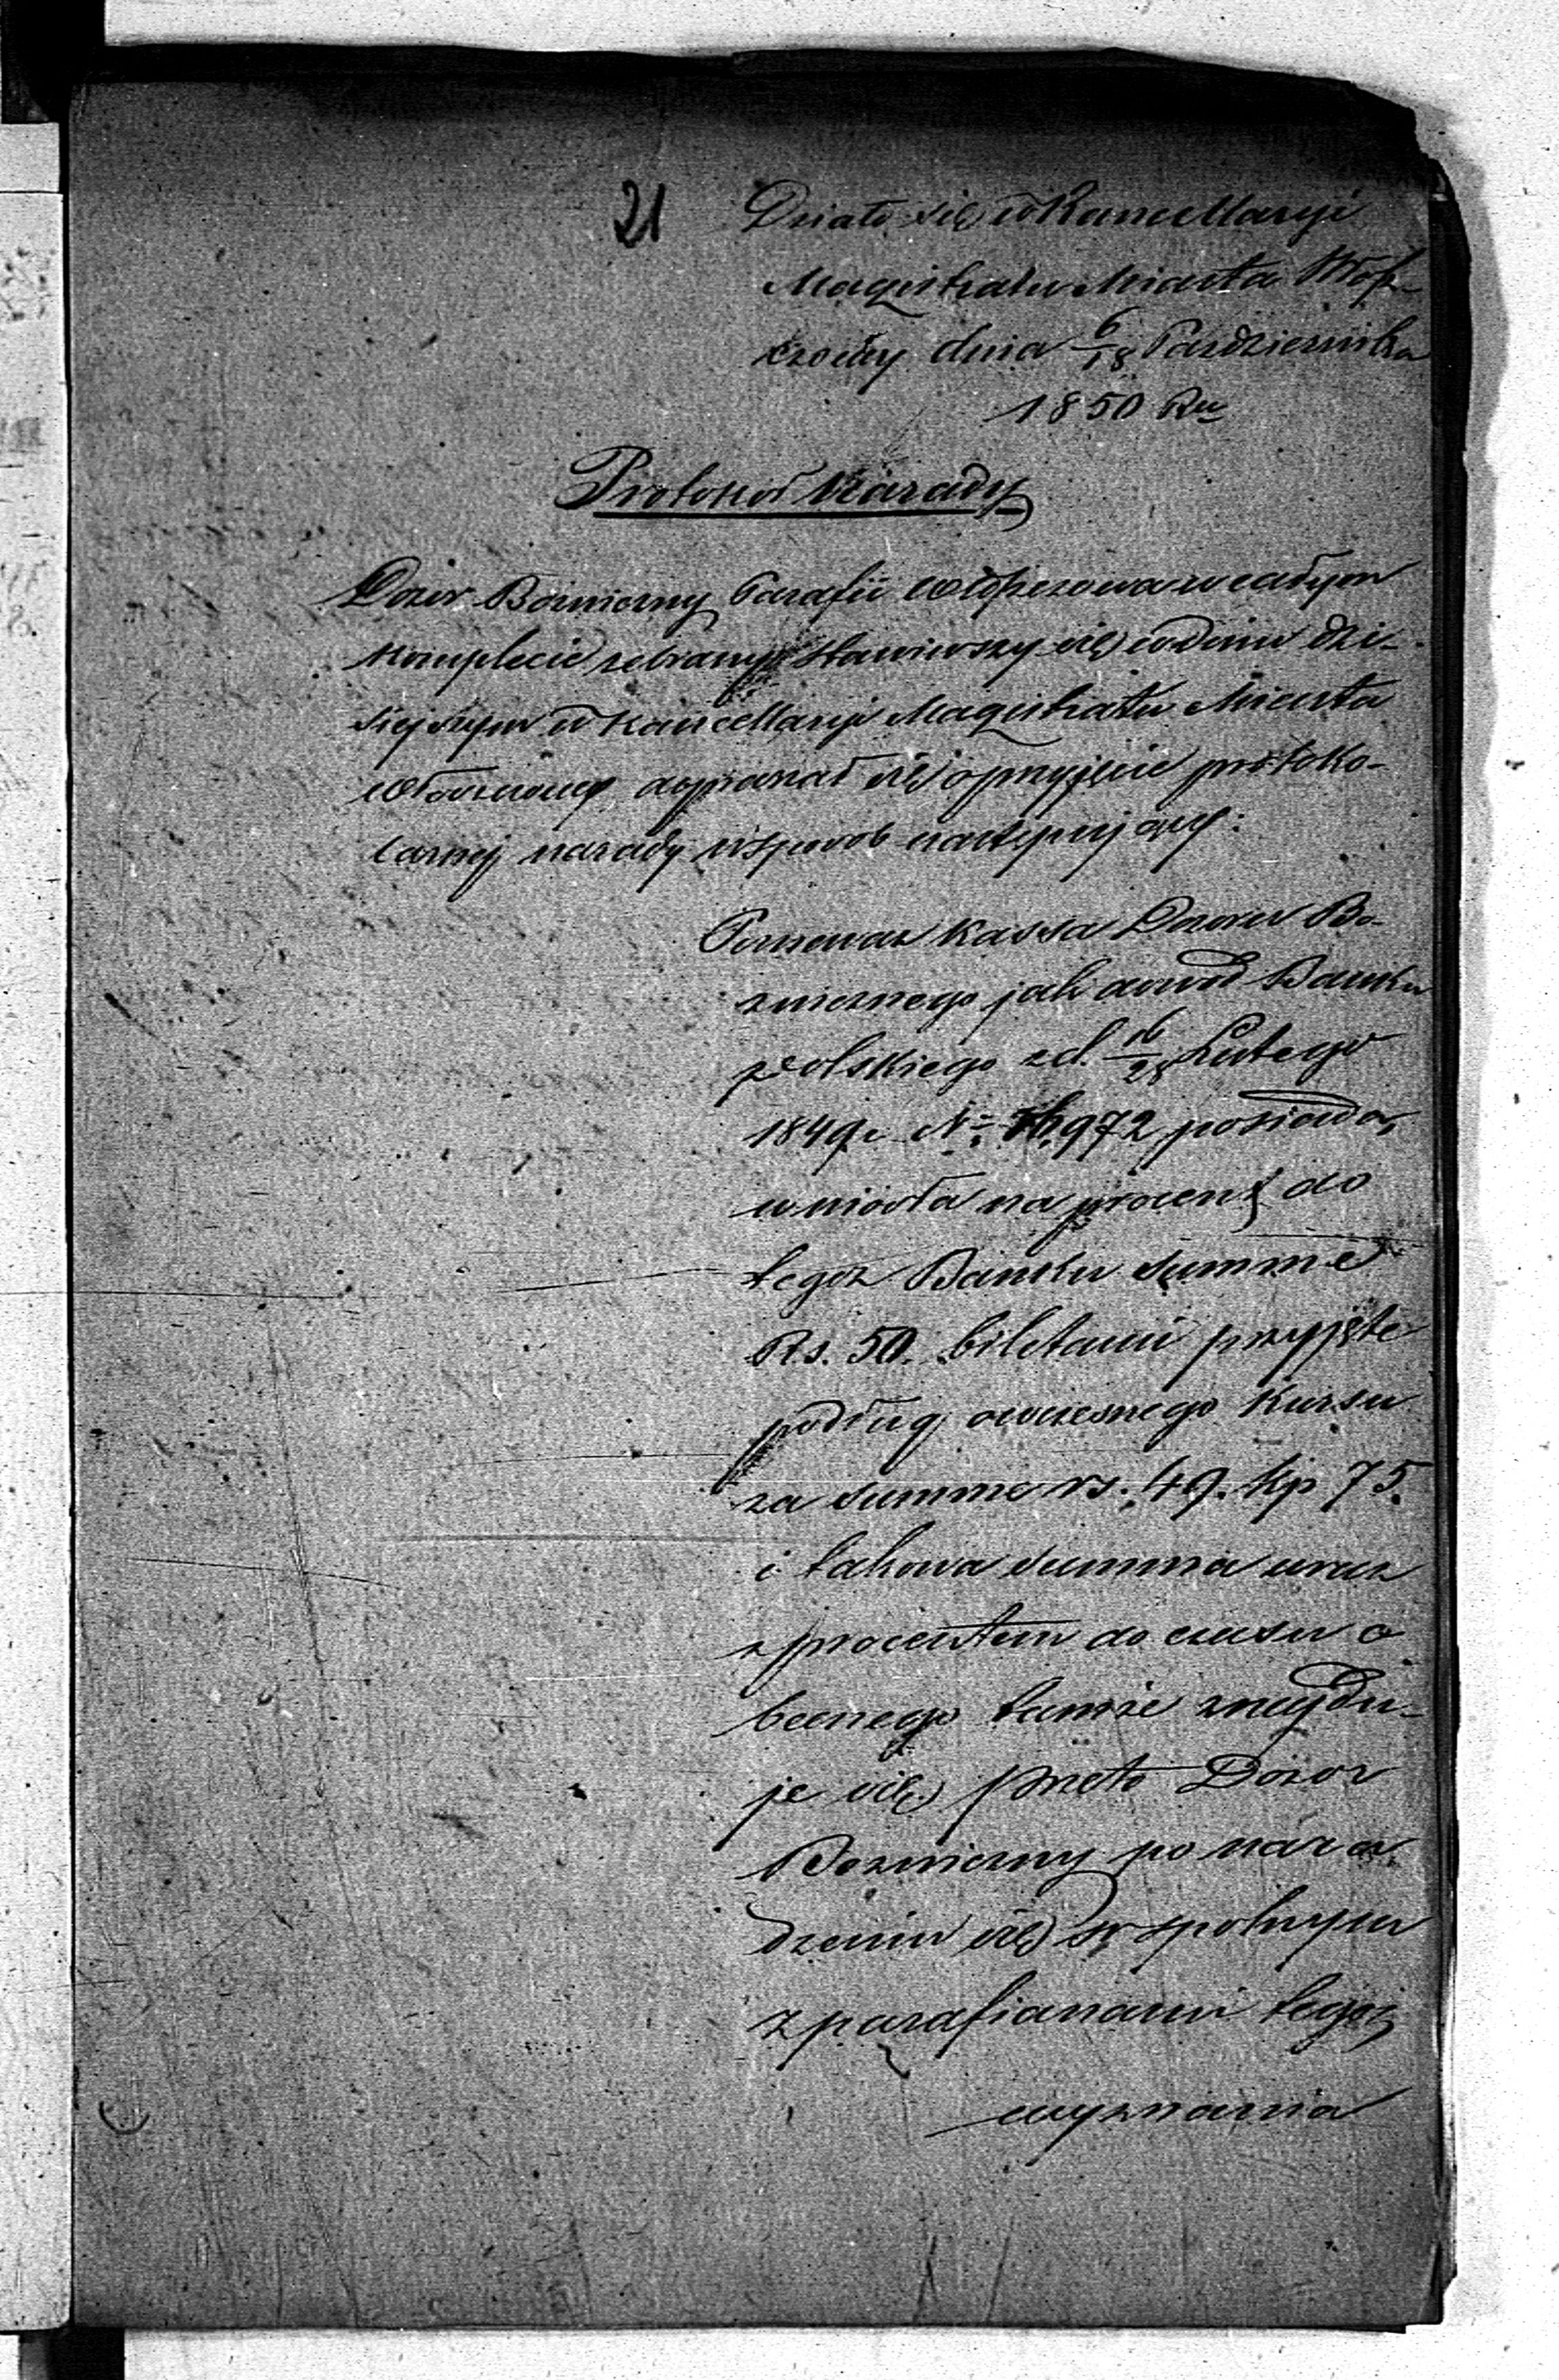 21
Działo się w Kancellaryi
Magistratu Miasta Włosz-
czowy dnia 6/18 Pazdziernika
1850 Ru
Protokoł Narady
Dozór Bozniczny Parafii Włoszczowa w całym
komplecie zebrany stawiwszy się w dniu dzi-
siejszym w Kancellaryi Magistratu Miasta
Włoszczowy dopraszał się o przyjęcie protoko-
larnej narady w sposob następujący:
Ponieważ Kassa Dozoru Bo-
znicznego jak dowod Banku
Polskiego z d. 16/28 Lutego
1849 r. No 972 posiada,
wniosła na procent do
tegoz Banku summe
Rs. 50. biletami przyjęte
podług owczesnego kursu
za summe rs. 49. kp 75.
i takowa summa wraz
z procentem do czasu o
becnego tamże znaydu-
je się, przeto Dozor
Bozniczny po nara
dzeniu się wspolnym
z parafianami tegoz
wyznania